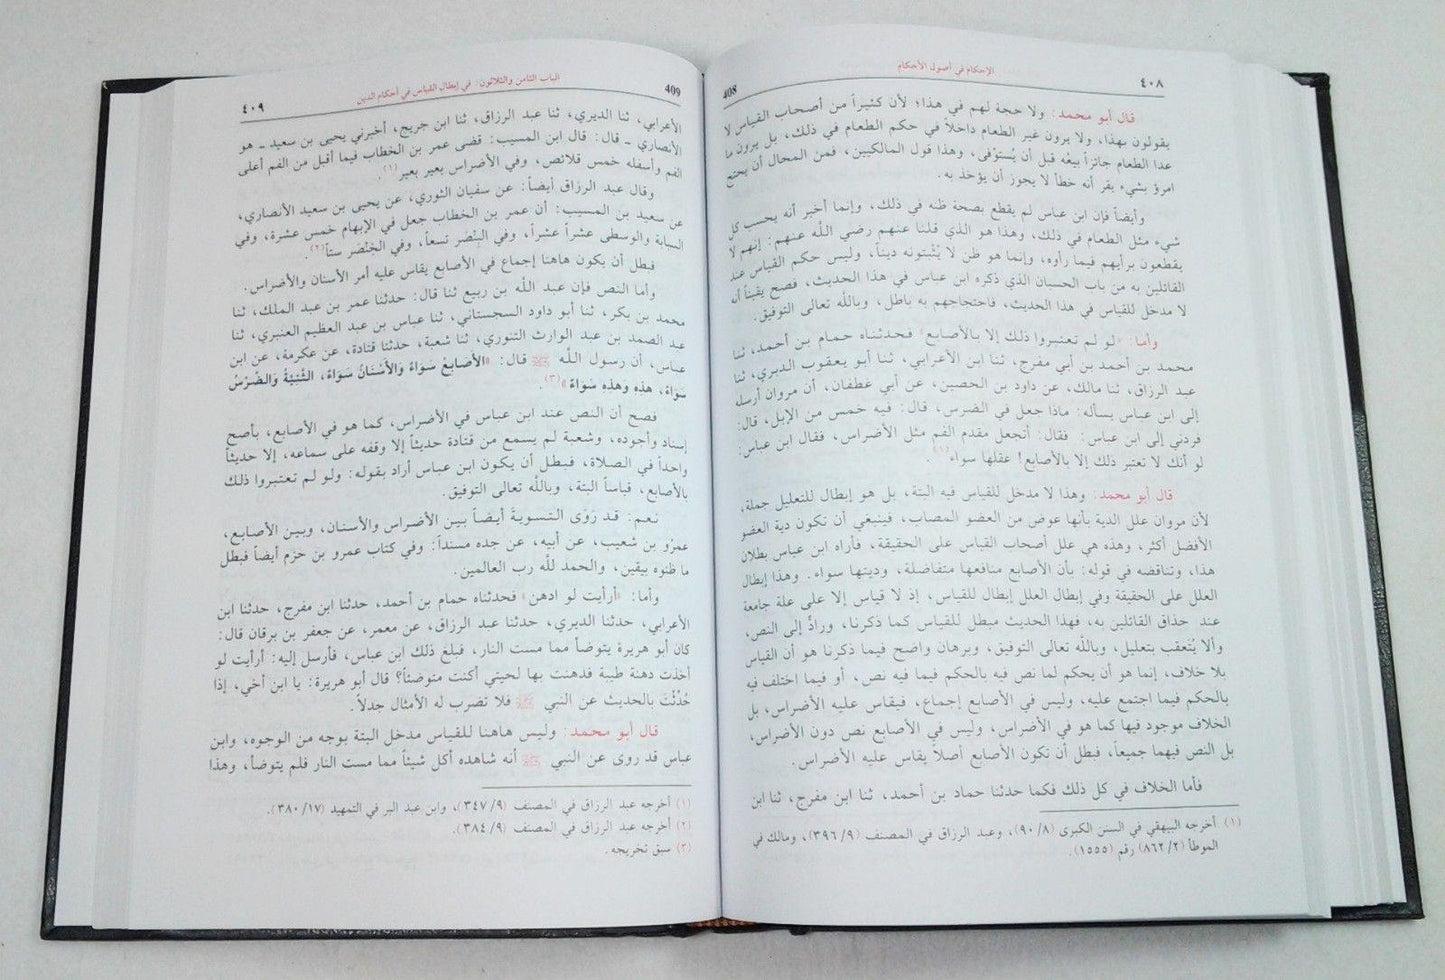 ٤٠٨
الإحكام في أصول الأحكام
408
قال أبو محمد: ولا حجة لهم في هذا؛ لأن كثيراً من أصحاب القياس لا
يقولون بهذا، ولا يرون غير الطعام داخلاً في حكم الطعام في ذلك، بل يرون ما
عدا الطعام جائزاً بيعُه قبل أن يُستوْفى، وهذا قول المالكيين، فمن المحال أن يحتج
امرؤ بشيء يقر أنه خطأ لا يجوز أن يؤخذ به.
وأيضاً فإن ابن عباس لم يقطع بصحة ظنه في ذلك، وإنما أخبر أنه يحسب كل
شيء مثل الطعام في ذلك، وهذا هو الذي قلنا عنهم رضي اللَّه عنهم: إنهم لا
يقطعون برأيهم فيما رأوه، وإنما هو ظن لا يُثْبتونه ديناً، وليس حكم القياس عند
القائلين به من باب الحسبان الذي ذكره ابن عباس في هذا الحديث، فصح يقيناً أنه
لا مدخل للقياس في هذا الحديث، فاحتجاجهم به باطل، وباللَّه تعالى التوفيق.
وأما: «لو لم تعتبروا ذلك إلا بالأصابع» فحدثناه حمام بن أحمد، ثنا
محمد بن أحمد بن أبي مفرج، ثنا ابن الأعرابي، ثنا أبو يعقوب الدبري، ثنا
عبد الرزاق، ثنا مالك، عن داود بن الحصين، عن أبي غطفان، أن مروان أرسله
إلى ابن عباس يسأله: ماذا جعل في الضرس، قال: فيه خمس من الإبل، قال:
فردني إلى ابن عباس: فقال: أتجعل مقدم الفم مثل الأضراس، فقال ابن عباس:
لو أنك لا تعتبر ذلك إلا بالأصابع! عقلها سواء(١)
قال أبو محمد: وهذا لا مدخل للقياس فيه البتة، بل هو إبطال للتعليل جملة،
لأن مروان علل الدية بأنها عوض من العضو المصاب، فينبغي أن تكون دية العضو
الأفضل أكثر، وهذه هي علل أصحاب القياس على الحقيقة، فأراه ابن عباس بطلان
هذا، وتناقضه في قوله: بأن الأصابع منافعها متفاضلة، وديتها سواء. وهذا إبطال
العلل على الحقيقة وفي إبطال العلل إبطال للقياس، إذ لا قياس إلا على علة جامعة
عند حذاق القائلين به، فهذا الحديث مبطل للقياس كما ذكرنا، ورادٌّ إلى النص،
وألا يُتعقب بتعليل، وباللَّه تعالى التوفيق، وبرهان واضح فيما ذكرنا هو أن القياس
بلا خلاف، إنما هو أن يحكم لما نص فيه بالحكم فيما فيه نص، أو فيما اختلف فيه
بالحكم فيما اجتمع عليه، وليس في الأصابع إجماع، فيقاس عليه الأضراس، بل
الخلاف موجود فيها كما هو في الأضراس، وليس في الأصابع نص دون الأضراس،
بل النص فيهما جميعاً، فبطل أن تكون الأصابع أصلاً يقاس عليه الأضراس.
فأما الخلاف في كل ذلك فكما حدثنا حماد بن أحمد، ثنا ابن مفرج، ثنا ابن
(١) أخرجه البيهقي في السنن الكبرى (٨/ ٩٠)، وعبد الرزاق في المصنف (٩/ ٣٩٦)، ومالك في
الموطأ (٢/ ٨٦٢) رقم (١٥٥٥).
409
الباب الثامن والثلاثون: في إبطال القياس في أحكام الدين
٤٠٩
الأعرابي، ثنا الدبري، ثنا عبد الرزاق، ثنا ابن جريج، أخبرني يحيى بن سعيد ـ هو
الأنصاري ـ قال: قال ابن المسيب: قضى عمر بن الخطاب فيما أقبل من الفم أعلى
الفم وأسفله خمس قلائص، وفي الأضراس بعير بعير(١).
وقال عبد الرزاق أيضاً: عن سفيان الثوري، عن يحيى بن سعيد الأنصاري،
عن سعيد بن المسيب: أن عمر بن الخطاب جعل في الإبهام خمس عشرة، وفي
السبابة والوسطى عشراً عشراً، وفي البِنْصَر تسعاً، وفي الخِنْصَر ستاً(٢).
فبطل أن يكون هاهنا إجماع في الأصابع يقاس عليه أمر الأسنان والأضراس.
وأما النص فإن عبد اللَّه بن ربيع ثنا قال: حدثنا عمر بن عبد الملك، ثنا
محمد بن بكر، ثنا أبو داود السجستاني، ثنا عباس بن عبد العظيم العنبري، ثنا
عبد الصمد بن عبد الوارث التنوري، ثنا شعبة، حدثنا قتادة، عن عكرمة، عن ابن
عباس، أن رسول اللَّه ﷺ قال: «الأصابعُ سَوَاءٌ وَالأَسْنَانُ سَوَاءٌ، الثَّنِيَّةُ وَالضِّرْسُ
سَوَاءٌ، هذِهِ وهَذِهِ سَوَاءٌ»(٣)
فصح أن النص عند ابن عباس في الأضراس، كما هو في الأصابع، بأصح
إسناد وأجوده، وشعبة لم يسمع من قتادة حديثاً إلا وقفه على سماعه، إلا حديثاً
واحداً في الصلاة، فبطل أن يكون ابن عباس أراد بقوله: ولو لم تعتبروا ذلك
بالأصابع، قياساً البتة، وباللَّه تعالى التوفيق.
نعم: قد رَوَى التسويةَ أيضاً بين الأضراس والأسنان، وبين الأصابع،
عمرُو بن شعيب، عن أبيه، عن جده مسنداً: وفي كتاب عمرو بن حزم أيضاً فبطل
ما ظنوه بيقين، والحمد للَّه رب العالمين.
وأما: «أرأيت لو ادهن» فحدثناه حمام بن أحمد، حدثنا ابن مفرج، حدثنا ابن
الأعرابي، حدثنا الدبري، حدثنا عبد الرزاق، عن معمر، عن جعفر بن برقان قال:
كان أبو هريرة يتوضأ مما مست النار، فبلغ ذلك ابن عباس، فأرسل إليه: أرأيت لو
أخذت دهنة طيبة فدهنت بها لحيتي أكنت متوضئاً؟ قال أبو هريرة: يا ابن أخي، إذا
حُدِّثْتَ بالحديث عن النبي ﷺ فلا تضرب له الأمثال جدلاً.
قال أبو محمد: وليس هاهنا للقياس مدخل البتة بوجه من الوجوه، وابن
عباس قد روى عن النبي ﷺ أنه شاهده أكل شيئاً مما مست النار فلم يتوضأ، وهذا
(١) أخرجه عبد الرزاق في المصنف (٩/ ٣٤٧)، وابن عبد البر في التمهيد (١٧/ ٣٨٠).
(٢) أخرجه عبد الرزاق في المصنف (٩/ ٣٨٤).
(٣) سبق تخريجه.